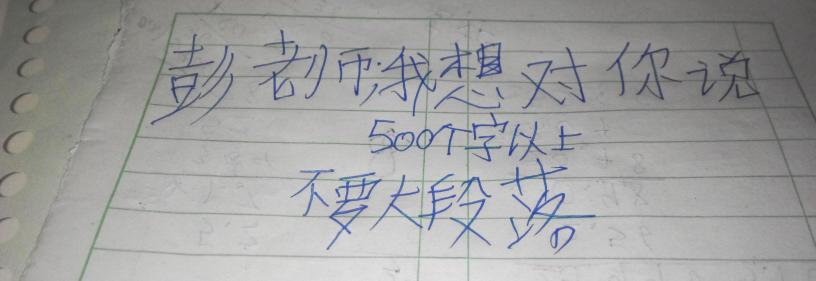 彭老师,我想对你说
500个字以上
不要大段落